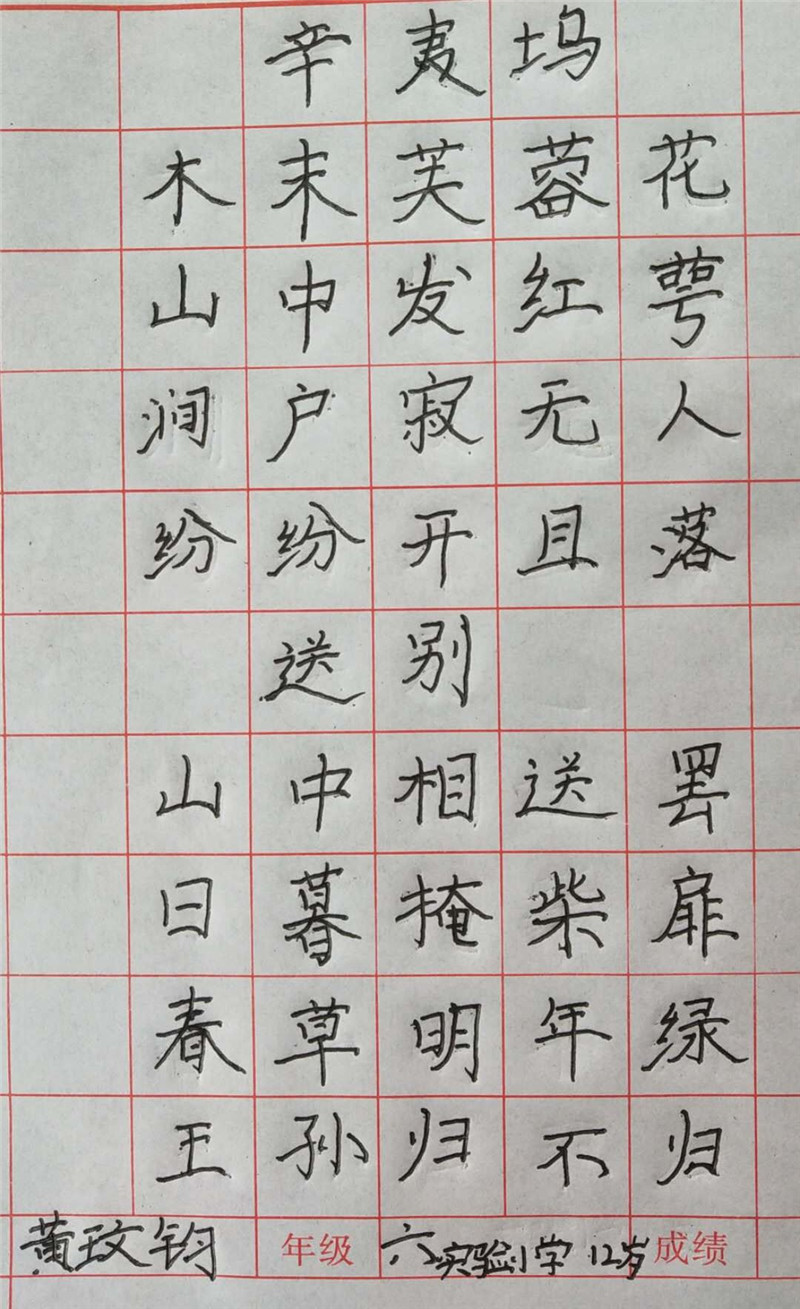 辛夷坞
木末芙蓉花
山中发红萼
涧户寂无人
纷纷开且落
送别
山中相送罢
日暮掩柴扉
春草明年绿
王孙归不归
黄玟钧 年级 六 实验小学 12岁 成绩